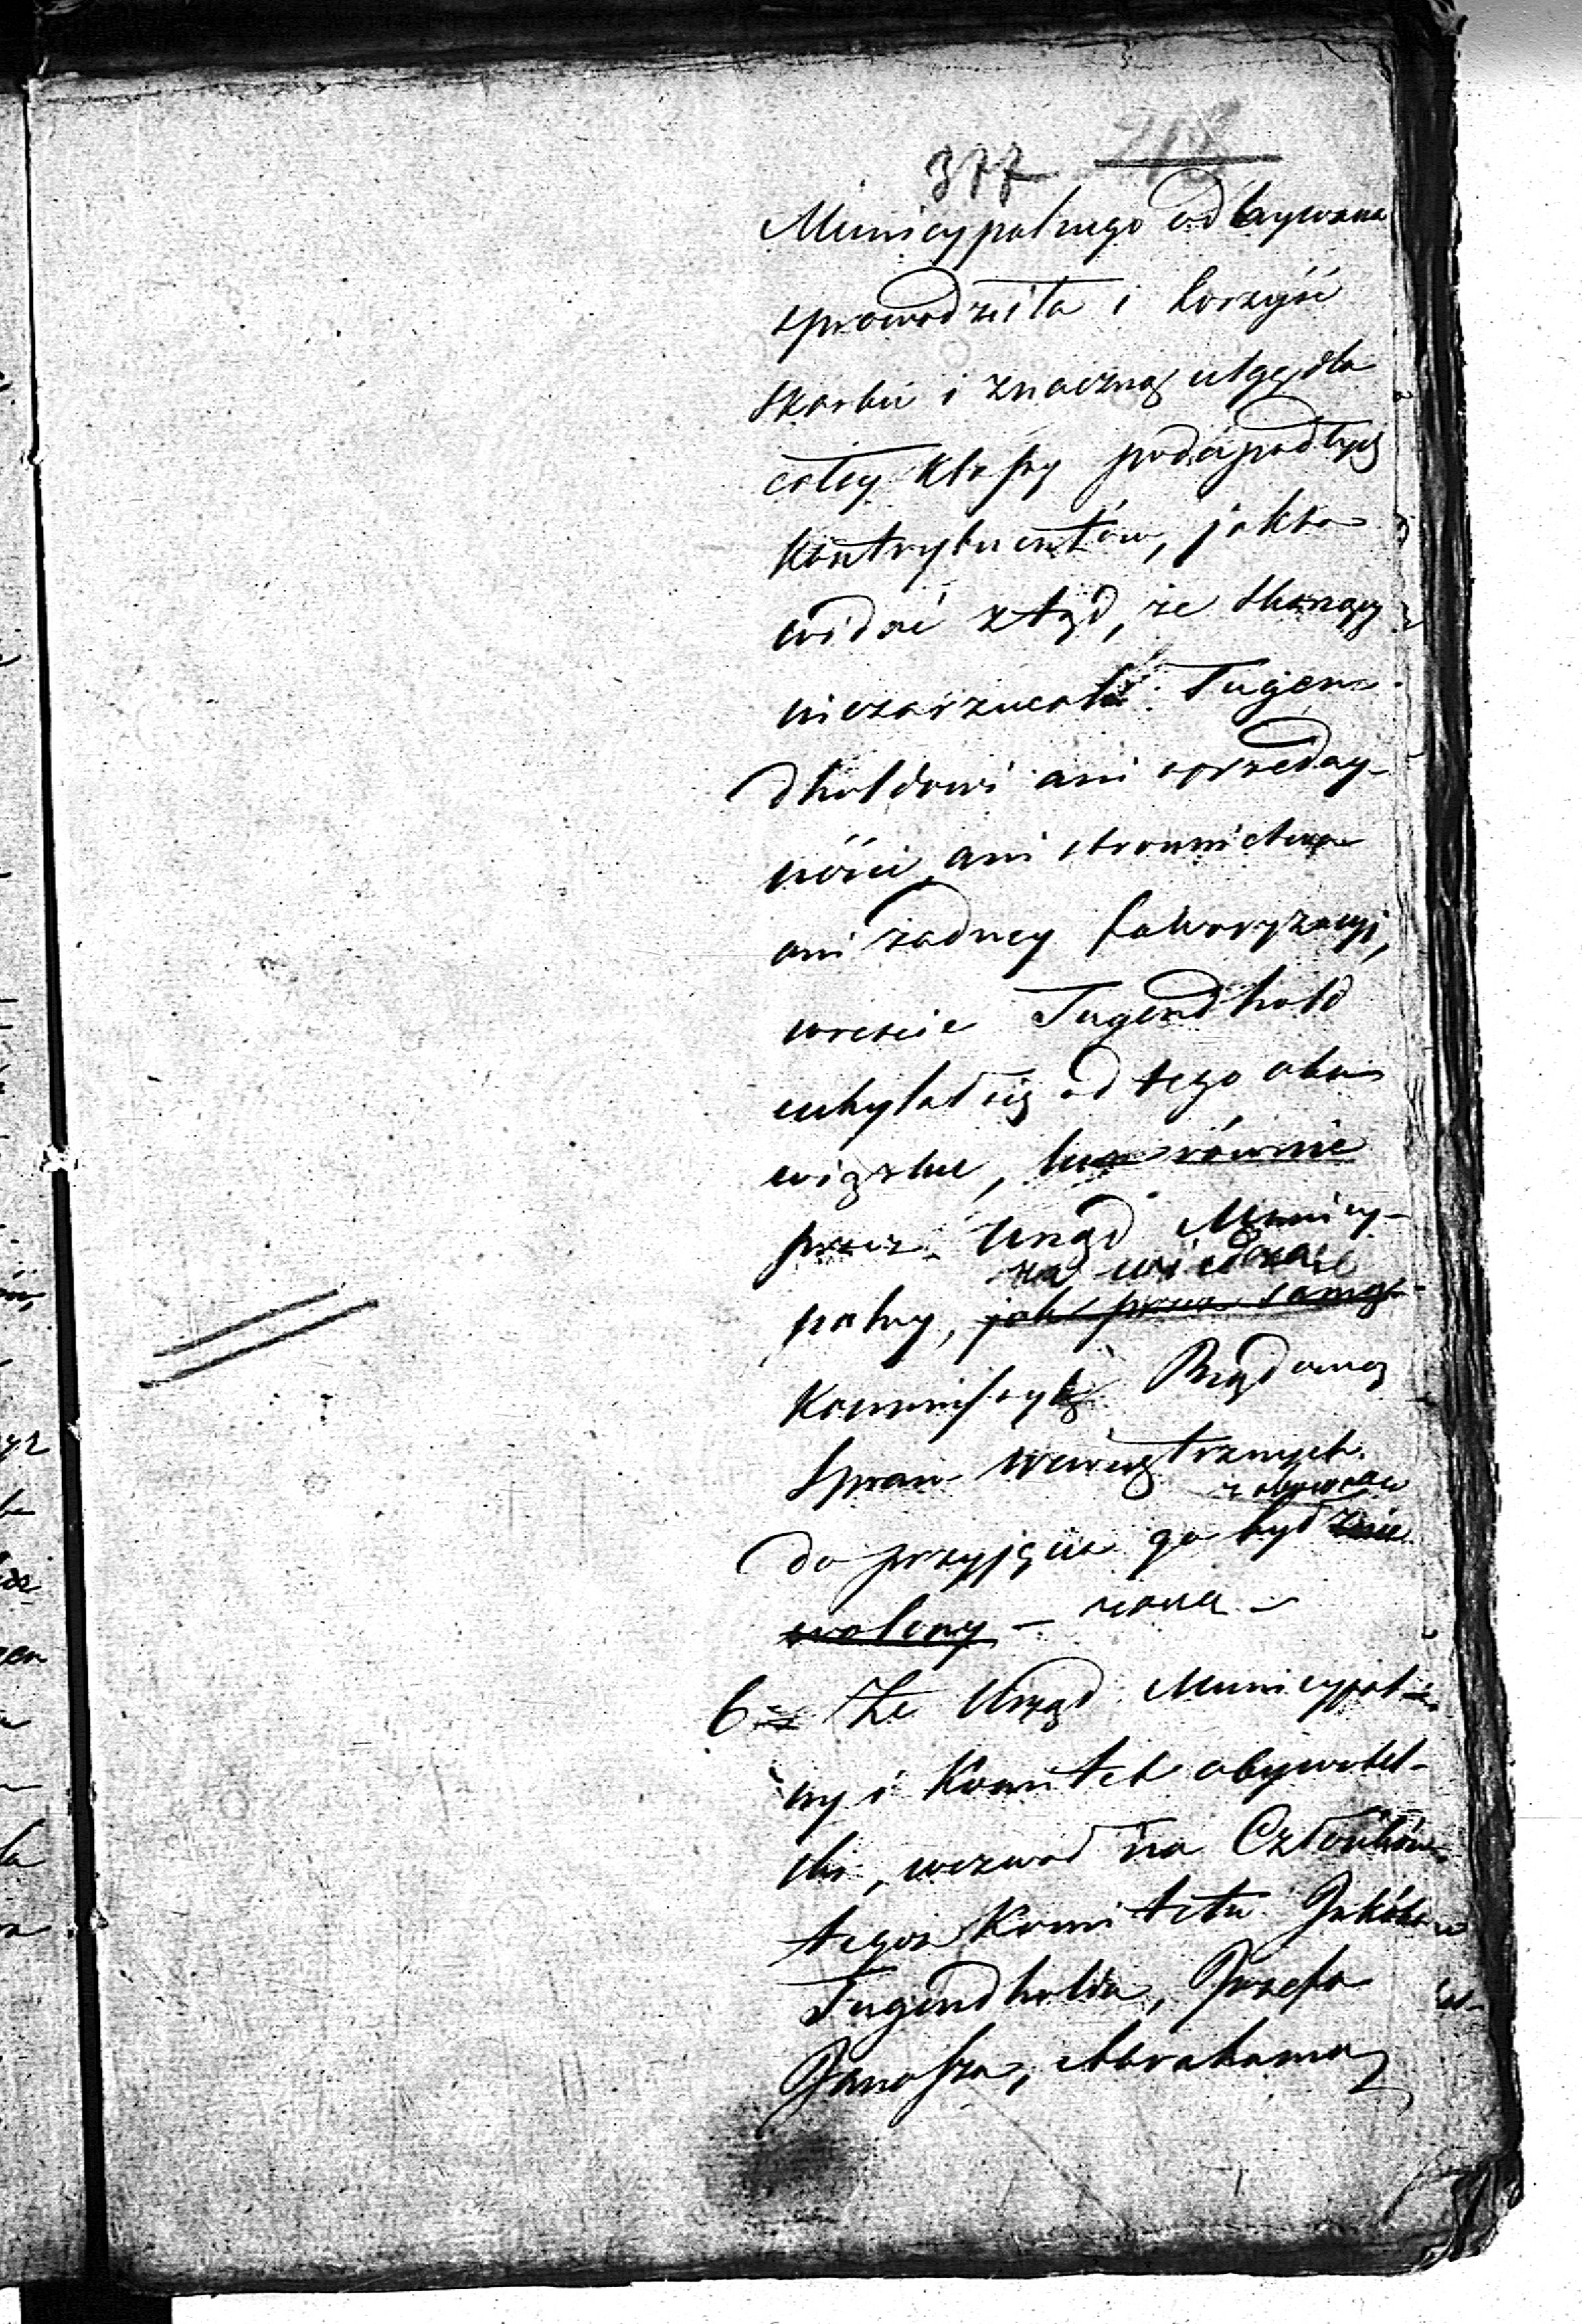 377 218
Municypalnego odbywana
sprowadziła i korzyść
skarbu i znaczną ulgę dla
całey klassy podupadłych
kontrybuentów, jak to
widać ztąd, że skarżący
niezarzucali Tugen-
dholdowi ani sprzeday-
ności, ani stronnictwa
ani żadney faworyzacyi,
wreście Tugendhold
uchylał się od tego obo-
wiązku, lecz równie
przez Urząd Municy-
za wiedzą
palny, jak przez samą
Kommissyą Rządową
Spraw Wewnętrznych
zobowią
do przyjęcia go był znie
wolony – zana –
6. Że Urząd Municypal-
ny i Komitet obywatel-
ski, wezwał na Członków
tegoż Komitetu Jakóba
Tugendholda, Józefa
Janasza, Abrahama